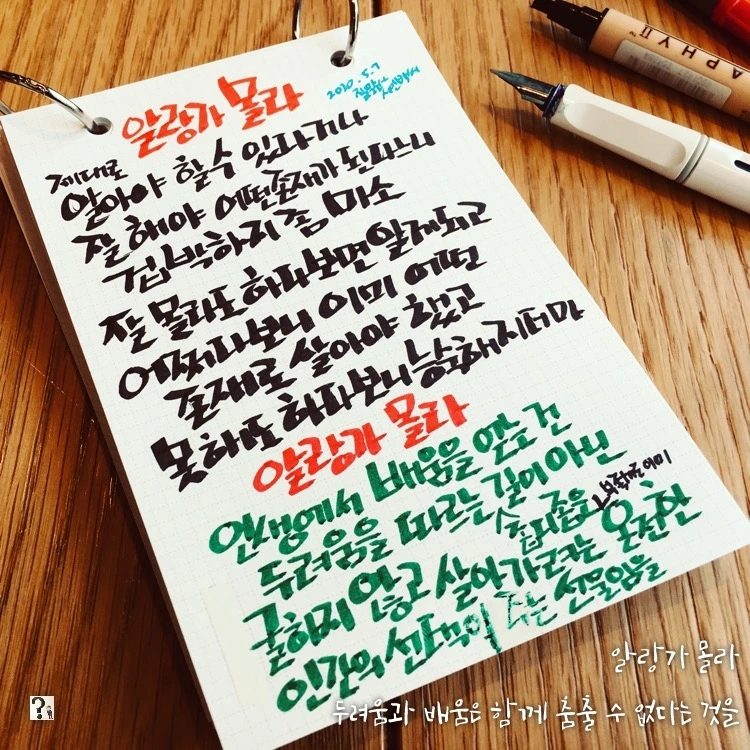 알랑가 몰라
2020. 5. 7
제대로
알아야 할 수 있다거나
잘 해야 어떤 존재가 된다느니
겁박하지 좀 마소
잘 몰라도 하다보면 알게되고
어쩌다보니 이미 어떤
존재로 살아야 했고
못해도 하다보니 능숙해지더마
알랑가 몰라
인생에서 배움을 얻는 건
두려움을 따르는 길이 아닌
숨다운
굴하지 않고 살아가려는 온전한
인간의 선택이 주는 선물임을
APHY
알랑가 몰라
두려움과 배움은 함께 춤출 수 없다는 것을
?